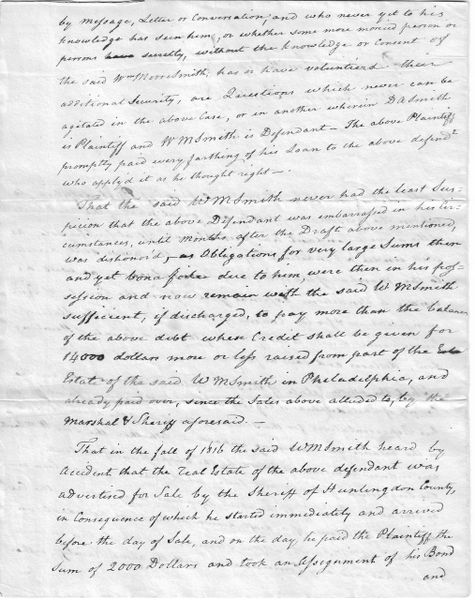 by Message, Letter or Conversation; and who never yet to his
knowledge has seen him, or whether some more monied person or
persons have secretly, without the knowledge or consent of
the said Wm Moore Smith, has or have volunteered their
additional Security, are Questions which never can be
agitated in the above Case, or in another wherein DA Smith
is Plaintiff and W M Smith is Defendant — The above Plaintiff
promptly paid every farthing of his Loan to the above defendt
who apply'd it as he thought right —
That the said W M Smith never had the least Sus-
picion that the above Defendant was embarrassed in his Cir-
cumstances, until Months after the Draft above mentioned,
was dishonor'd, as Obligations for very large Sums then
and yet bona fide due to him, were then in his pos-
session and now remain with the said W M Smith
sufficient, if discharged, to pay more than the balance
of the above debt when Credit shall be given for
14000 dollars more or less raised from part of the
Estate of the said W M Smith in Philadelphia, and
already paid over, since the Sales above alluded to, by the
Marshal & Sheriff aforesaid. —
That in the fall of 1816 the said W M Smith heard by
Accident that the real Estate of the above defendant was
advertised for Sale by the Sheriff of Huntingdon County,
in Consequence of which he started immediately and arrived
before the day of Sale, and on the day he paid the Plaintiff the
Sum of 2000 Dollars and took an Assignment of his Bond
and